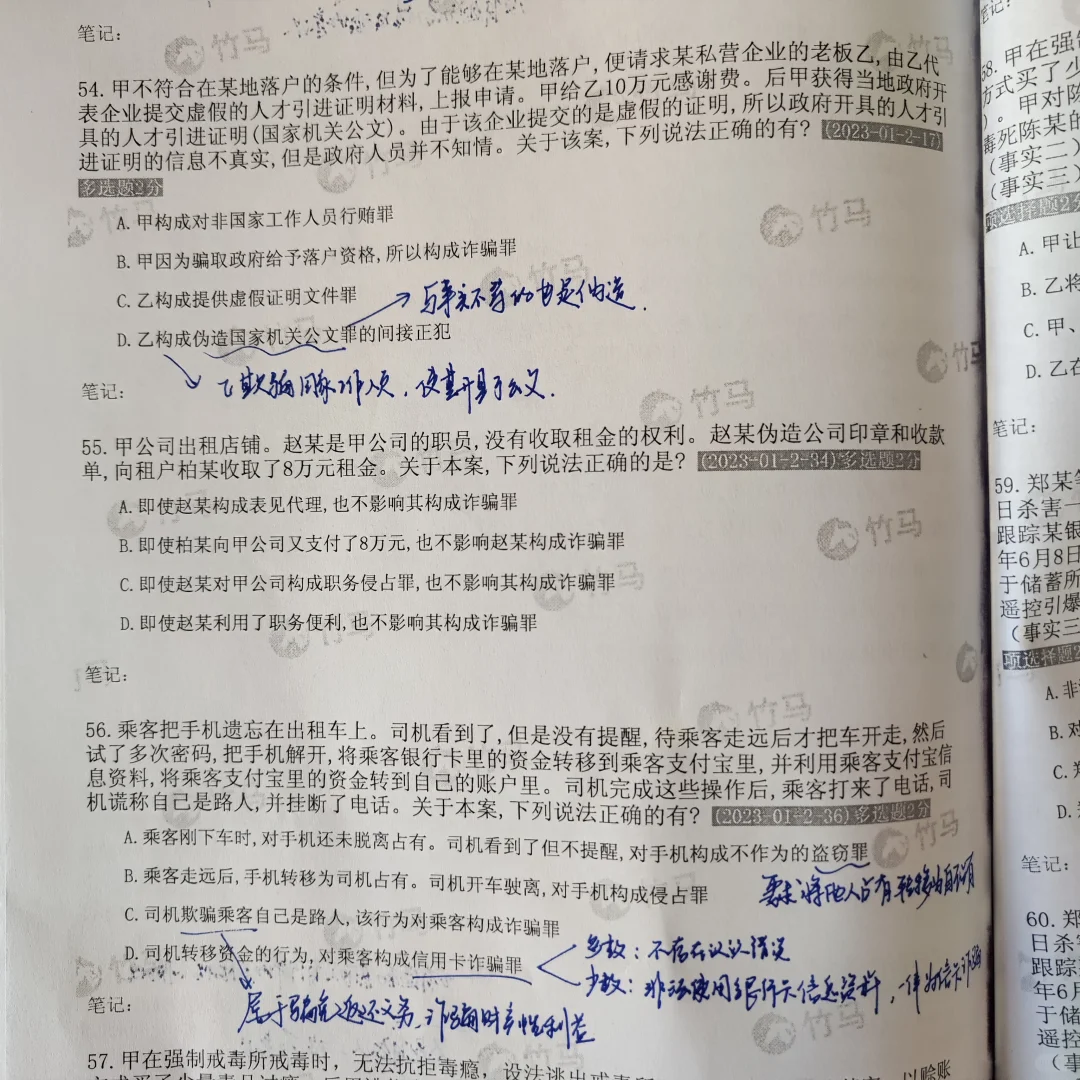 笔记:
竹马
54. 甲不符合在某地落户的条件,但为了能够在某地落户,便请求某私营企业的老板乙,由乙代
表企业提交虚假的人才引进证明材料,上报申请。甲给乙10万元感谢费。后甲获得当地政府开
具的人才引进证明(国家机关公文)。由于该企业提交的是虚假的证明,所以政府开具的人才引
进证明的信息不真实,但是政府人员并不知情。关于该案,下列说法正确的有? (2023-01-2-17)
多选题2分
A. 甲构成对非国家工作人员行贿罪
B. 甲因为骗取政府给予落户资格,所以构成诈骗罪
C. 乙构成提供虚假证明文件罪
与事实不符的也是伪造.
D. 乙构成伪造国家机关公文罪的间接正犯
笔记:
乙欺骗国家工作人员,使其开具了公文.
55. 甲公司出租店铺。赵某是甲公司的职员,没有收取租金的权利。赵某伪造公司印章和收款
单,向租户柏某收取了8万元租金。关于本案,下列说法正确的是? (2023-01-2-34)多选题2分
A. 即使赵某构成表见代理,也不影响其构成诈骗罪
B. 即使柏某向甲公司又支付了8万元,也不影响赵某构成诈骗罪
C. 即使赵某对甲公司构成职务侵占罪,也不影响其构成诈骗罪
D. 即使赵某利用了职务便利,也不影响其构成诈骗罪
笔记:
56. 乘客把手机遗忘在出租车上。司机看到了,但是没有提醒,待乘客走远后才把车开走,然后
试了多次密码,把手机解开,将乘客银行卡里的资金转移到乘客支付宝里,并利用乘客支付宝信
息资料,将乘客支付宝里的资金转到自己的账户里。司机完成这些操作后,乘客打来了电话,司
机谎称自己是路人,并挂断了电话。关于本案,下列说法正确的有? (2023-01-2-36)多选题2分
A. 乘客刚下车时,对手机还未脱离占有。司机看到了但不提醒,对手机构成不作为的盗窃罪
B. 乘客走远后,手机转移为司机占有。司机开车驶离,对手机构成侵占罪
要求将他人占有转移为自己占有
C. 司机欺骗乘客自己是路人,该行为对乘客构成诈骗罪
D. 司机转移资金的行为,对乘客构成信用卡诈骗罪
多数:不存在认识错误
少数:非法使用银行卡信息资料,一律为信用卡诈骗
笔记:
属于骗免返还义务,诈骗财产性利益
57. 甲在强制戒毒所戒毒时,无法抗拒毒瘾,设法逃出戒毒
笔记:
58. 甲在强制
方式买了少
)。甲对陈
毒死陈某的
(事实二)
(事实三)
项选择题2分
A. 甲让
B. 乙将
C. 甲、
D. 乙在
笔记:
59. 郑某等
日杀害一
跟踪某银
年6月8日
于储蓄所
遥控引爆
(事实三
项选择题2
A. 非
B. 对
C. 郑
D.
笔记:
60. 郑
日杀害
跟踪
年6月
于储
遥控
(事